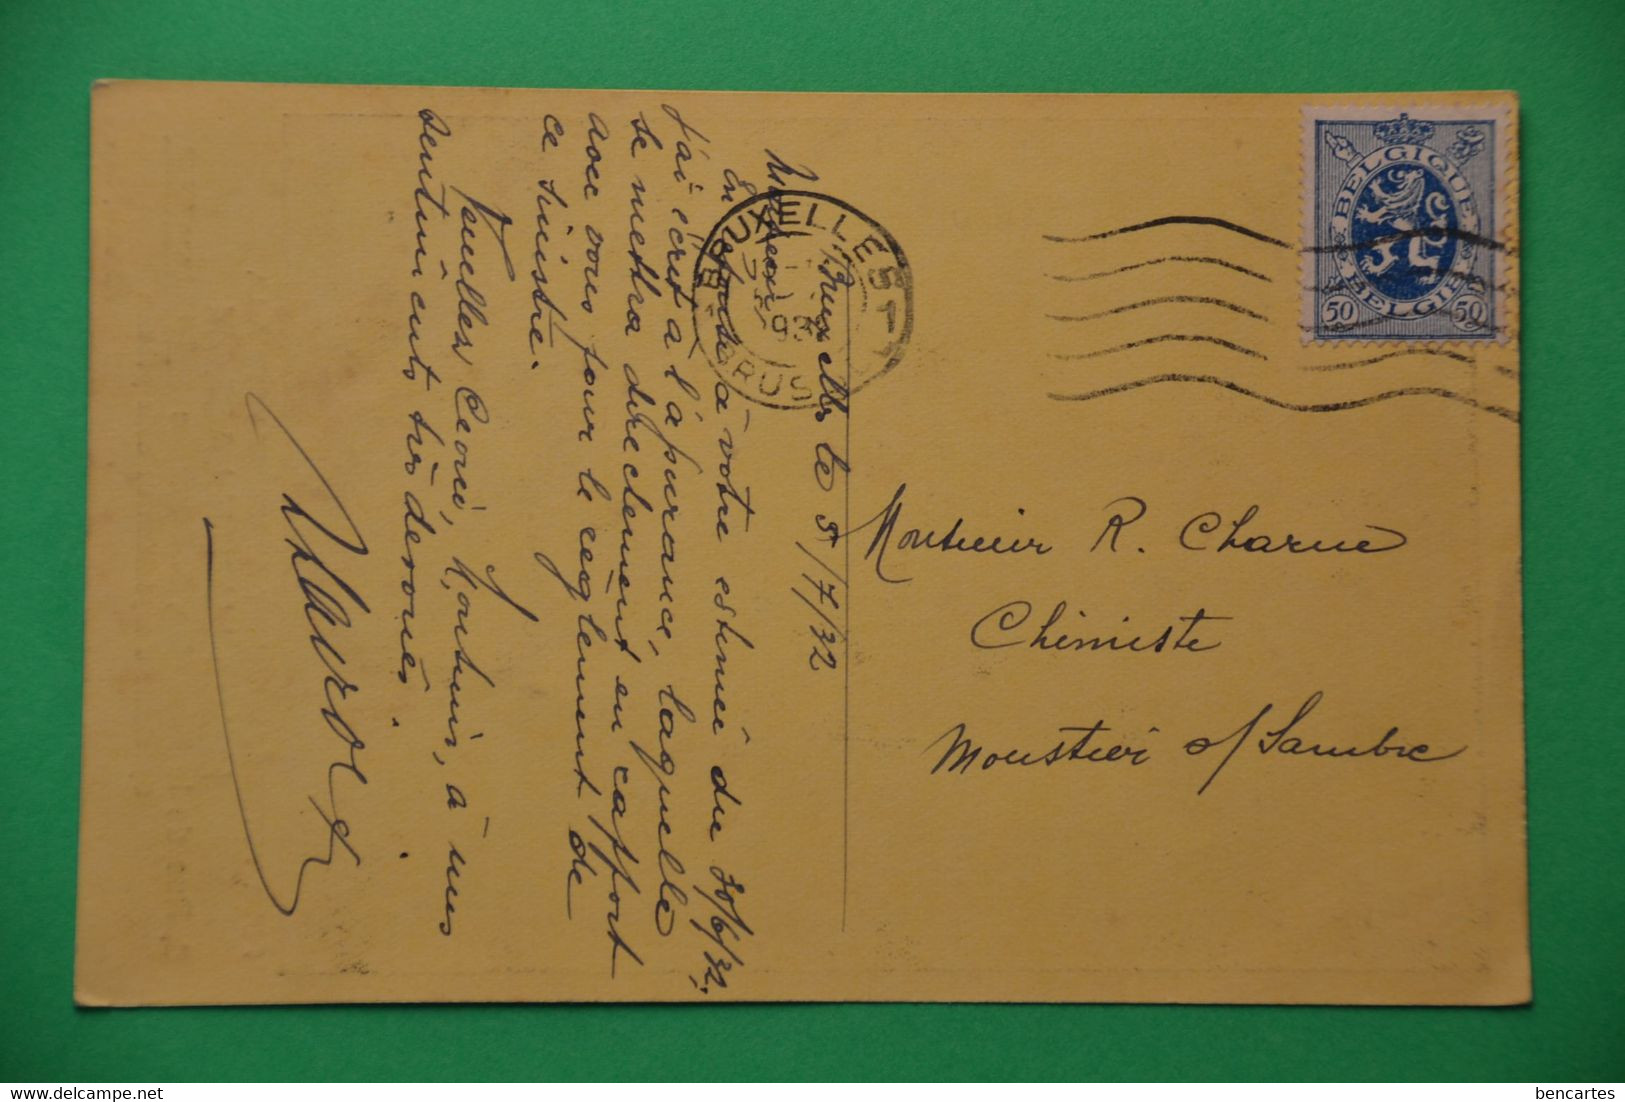 Bruxelles le 5/7/32
Monsieur
En réponse à votre estimée du 30/6/32,
j'ai écrit à l'assurance, laquelle
se mettra directement en rapport
avec vous pour le règlement de
ce sinistre.
Veuillez Croire, Monsieur, à mes
sentiments très dévoués.
BRUXELLES 1
BRUS
BELGIQUE
BELGIE
50 50
Monsieur R. Charue
Chimiste
Moustier s/ Sambre
bencartes